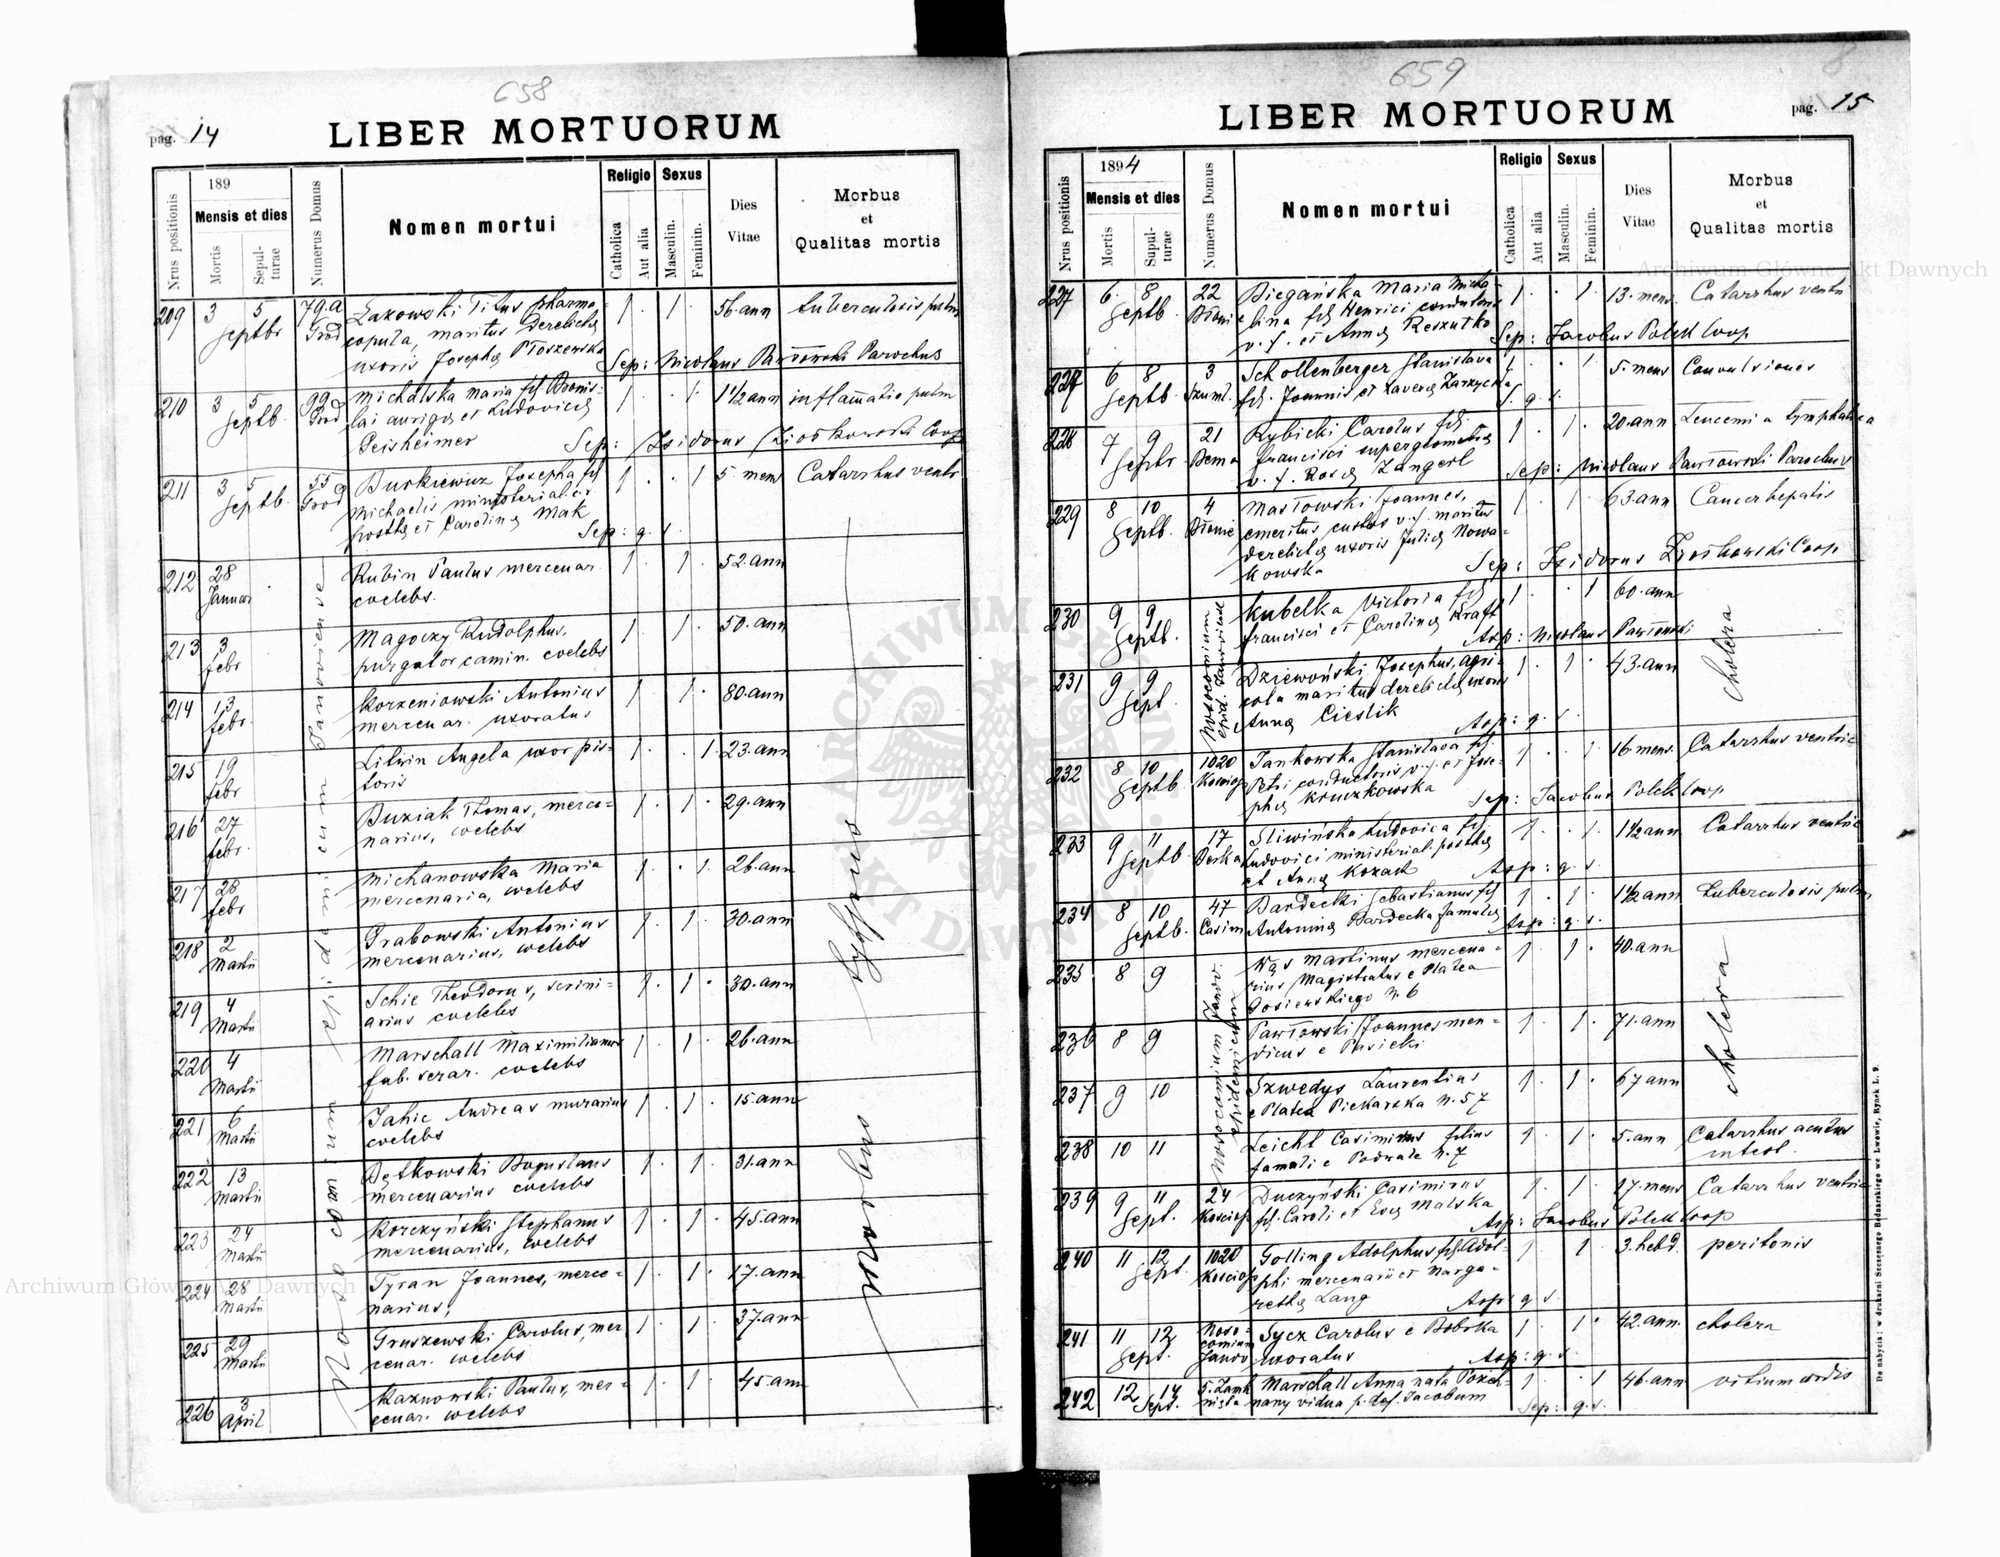 658
pag. 14
LIBER MORTUORUM
Nrus positionis
189
Mensis et dies
Mortis
Sepulturae
Numerus Domus
Nomen mortui
Religio
Catholica
Aut alia
Sexus
Masculin.
Feminin.
Dies
Vitae
Morbus
et
Qualitas mortis
209 3 5 79.a Titus pharma- 1 1 56.ann tuberculosis pulm
Septbr Grod copula, maritus derelictę
uxoris Josephę Ptoszewska Sep: Nicolaus Parochus
210 3 5 99 Michalska Maria fil. Bronis- 1 1 1 1/2 ann inflamatio pulm
Septb. Grod lai aurigę et Ludovicę
Peisheimer Sep: Isidorus Coop
211 3 5 55 Burkiewicz Josepha fil 1 1 5 mens Catarrhus ventr
Septb. Grod Michaelis ministerial. er
posthę et Carolinę Mak
Sep: q. s.
212 28 Rubin Paulus mercenar. 1 1 52.ann
Januar coelebs.
213 3 Magoczy Rudolphus, 1 1 50.ann
febr purgator camin. coelebs
214 13 Korzeniowski Antonius 1 1 80.ann
febr. mercenar. uxoratus
215 19 Litwin Angela uxor pis- 1 1 23.ann
febr toris
216 27 Buziak Thomas, merce- 1 1 29.ann
febr. narius, coelebs
217 28 Michanowska Maria 1 1 26.ann
febr mercenaria, coelebs
218 2 Grabowski Antonius 1 1 30.ann
Martii mercenarius, coelebs
219 4 Schie Theodorus, scrini- 1 1 30.ann
Martii arius coelebs
220 4 Marschall Maximilianus 1 1 26.ann
Martii fab. serar. coelebs
221 6 Jahie Andreas murarius 1 1 15.ann
Martii coelebs
222 13 Dętkowski Boguslaus 1 1 31.ann
Martii mercenarius coelebs
223 24 Korczyński Stephanus 1 1 45.ann
Martii mercenarius, coelebs
224 28 Tyran Joannes, merce- 1 1 17.ann
Martii narius,
225 29 Gruszewski Carolus, mer 1 1 37.ann
Martii cenar. coelebs
226 3 Kaznowski Paulus, mer- 1 1 45.ann
April cenar. coelebs
morbus typhus
659
LIBER MORTUORUM
pag. 15
Nrus positionis
1894
Mensis et dies
Mortis
Supulturae
Numerus Domus
Nomen mortui
Religio
Catholica
Aut alia
Sexus
Masculin.
Feminin.
Dies
Vitae
Morbus
et
Qualitas mortis
227 6 8 22 Biegańska Maria Micha- 1 1 13.mens Catarrhus ventri
Septb. Błonie lina fil Henrici conductoris
v. f. et Annę Reszutko Sep: Jacobus Polek Coop
227 6 8 3 Schollenberger Stanislava 1 1 5.mens Convulsiones
Septb. fil. Joannis et Xaverę Zarzycka S. q. s.
228 7 9 21 Rybicki Carolus fil. 1 1 20.ann Leucemia lymphatica
Septbr Francisci
v. f. Rosę Zangerl Sep: Nicolaus Pawłowski Parochus
229 8 10 4 Masłowski Joannes, 1 1 63.ann Cancer hepatis
Septb. Błonie emeritus custos v.f. maritus
derelictę uxoris Julię Nowa-
kowska Sep: Isidorus Coop
230 9 9 Kubelka Victoria fil 1 1 60.ann
Septb. Francisci et Carolinę Kraft
Asp: Nicolaus Pawłowski
231 9 9 Dziewoński Josephus, agri- 1 1 43.ann
Sept. cola maritus derelictę uxoris
Annę Cieslik Asp: q. s.
cholera
232 8 10 1020 Jankowska Stanislava fil. 1 1 16.mens. Catarrhus ventric
Septb. Kosciop Petri conductoris v. f. et Jose-
phę Kruczkowska Sep: Jacobus Polek Coop
233 9 11 17 Sliwińska Ludovica fil. 1 1 1 1/2 ann Catarrhus ventric
Septb. Ludovici ministerial. posthę
et Annę Kozak Asp: q. s.
234 8 10 47 Bardecki Sebastianus fil 1 1 1 1/2 ann tuberculosis pulm
Septb. Casim Antoninę Bardecka famulę Asp: q. s.
Nosocomium Janov. epidemicum
235 8 9 Wąs Martinus mercena- 1 1 40.ann
rius Magistratus e Platea
Gosiewskiego N. 6
236 8 9 Pawłowski Joannes men- 1 1 71.ann
dicus e Pasieki
237 9 10 Szwedys Laurentius 1 1 67 ann
e Platea Piekarska N. 57
cholera
238 10 11 Leicht Casimirus filius 1 1 5.ann Catarrhus acutus
famuli e Podwale N. 7 intest.
239 9 11 24 Duczyński Casimirus 1 1 17.mens Catarrhus ventric
Sept. Kosciop fil. Caroli et Evę Malska Asp: Jacobus Polek Coop
240 11 12 1020 Golling Adolphus fil. Adol- 1 1 3.hebd. peritonis
Sept. Kosciop phi mercenarii et Marga-
rethę Lang Asp: q s.
241 11 12 Noso- Sycz Carolus e Bobrka 1 1 42.ann. cholera
Sept. comium Janov uxoratus Asp: q. s.
242 12 14 Marschall Anna nata 1 1 46.ann vitium cordis
Sept. vidua p. def. Jacobum Sep: q. s.
Do nabycia: w drukarni Szczęsnego Bednarskiego we Lwowie, Rynek L. 9.
Archiwum Główne Akt Dawnych
Archiwum Główne Akt Dawnych
ARCHIWUM GŁÓWNE AKT DAWNYCH